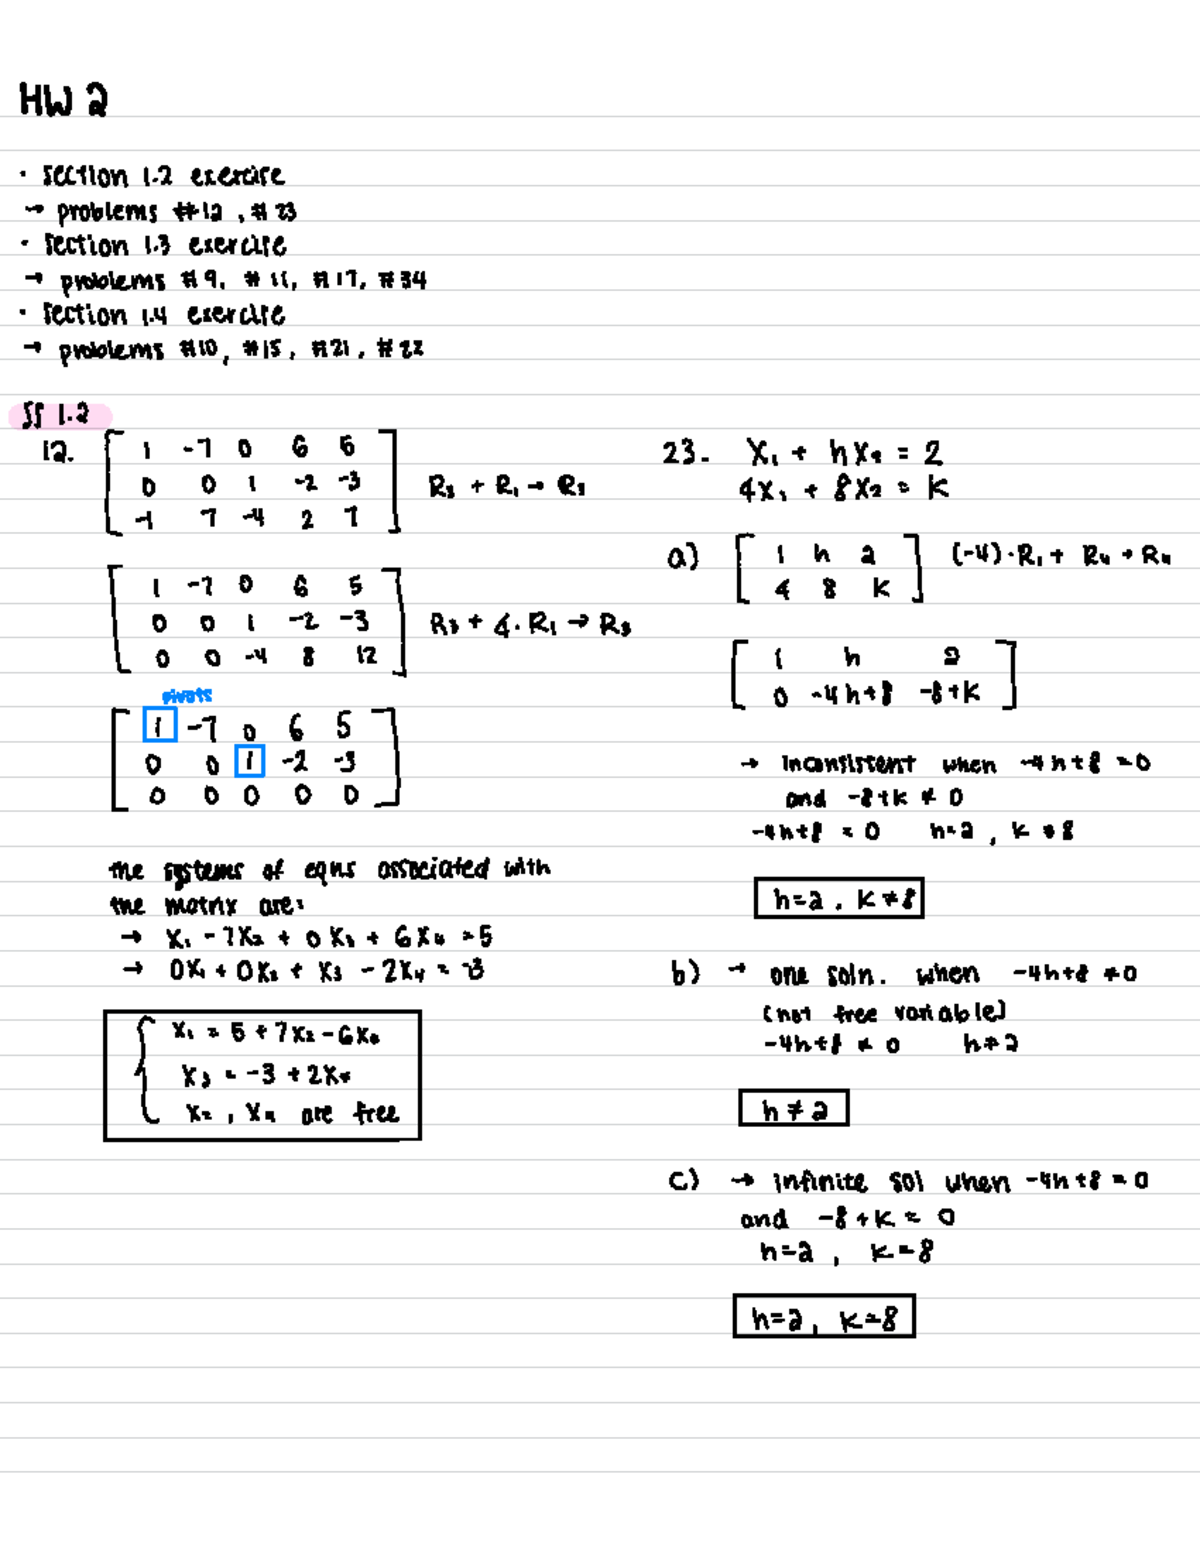 HW 2
· Section 1.2 exercise
→ problems #12, #23
· Section 1.3 exercise
→ problems #9, #11, #17, #34
· Section 1.4 exercise
→ problems #10, #15, #21, #22
SS 1.2
12.
1 -7 0 6 5
0 0 1 -2 -3
-1 7 -4 2 7
R₃ + R₁ → R₃
1 -7 0 6 5
0 0 1 -2 -3
0 0 -4 8 12
R₃ + 4·R₁ → R₃
pivots
1 -7 0 6 5
0 0 1 -2 -3
0 0 0 0 0
the systems of eqns associated with
the matrix are:
→ X₁ - 7X₂ + 0X₃ + 6X₄ = 5
→ 0X₁ + 0X₂ + X₃ - 2X₄ = -3
X₁ = 5 + 7X₂ - 6X₄
X₃ = -3 + 2X₄
X₂, X₄ are free
23. X₁ + hX₂ = 2
4X₁ + 8X₂ = K
a)
1 h 2
4 8 K
(-4)·R₁ + R₄ → R₄
1 h 2
0 -4h+8 -8+K
→ inconsistent when -4h+8 = 0
and -8+K ≠ 0
-4h+8 = 0 h=2, K ≠ 8
h=2, K ≠ 8
b) → one soln. when -4h+8 ≠ 0
(not free variable)
-4h+8 ≠ 0 h≠2
h ≠ 2
c) → infinite sol when -4h+8 = 0
and -8+K = 0
h=2, K=8
h=2, K=8